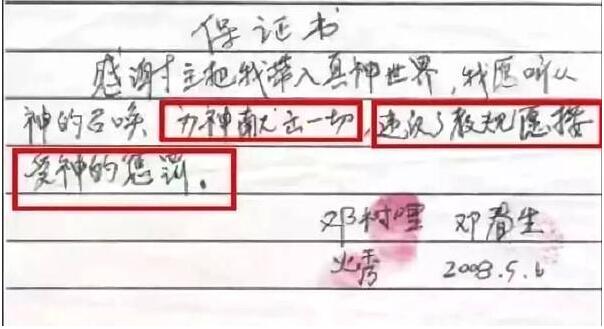 保证书
感谢主把我带入真神世界,我愿听从
神的召唤 为神献出一切,违反了教规愿接
受神的惩罚。
邓村哩 邓春生
火秀 2008.5.6